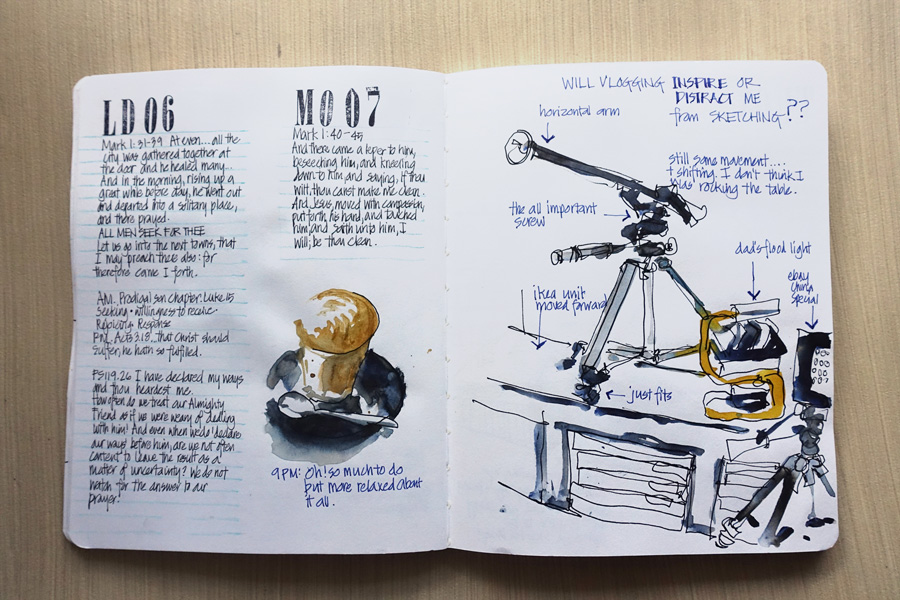 LD 06
Mark 1:31-39 At even... all the
city was gathered together at
the door and he healed many...
And in the morning, rising up a
great while before day, he went out
and departed into a solitary place,
and there prayed.
ALL MEN SEEK FOR THEE
Let us go into the next towns, that
I may preach there also: for
therefore came I forth.
AM. Prodigal son Chapter: Luke 15
Seeking - willingness to receive-
Response
PM. Acts 3:18. that Christ should
suffer, he hath so fulfilled.
PS 119.26 I have declared my ways
and thou heardest me.
How often do we treat our Almighty
Friend as if we were weary of dealing
with him! And even when we do 'declare
our ways' before him, are we not often
content to leave the result as a
matter of uncertainty? We do not
watch for the answer to our
prayer!
MO 07
Mark 1:40-45
And there came a leper to him,
beseeching him, and kneeling
down to him and saying, if thou
wilt, thou canst make me clean.
And Jesus, moved with compassion,
put forth his hand, and touched
him, and saith unto him, I
will; be thou clean.
9PM: Oh! so much to do
but more relaxed about
it all.
WILL VLOGGING INSPIRE OR
DISTRACT ME
from SKETCHING??
horizontal arm
still some movement....
+ shifting. I don't think I
was rocking the table.
the all important
screw
dad's flood light
ebay
china
special
ikea unit
moved forward
just fits